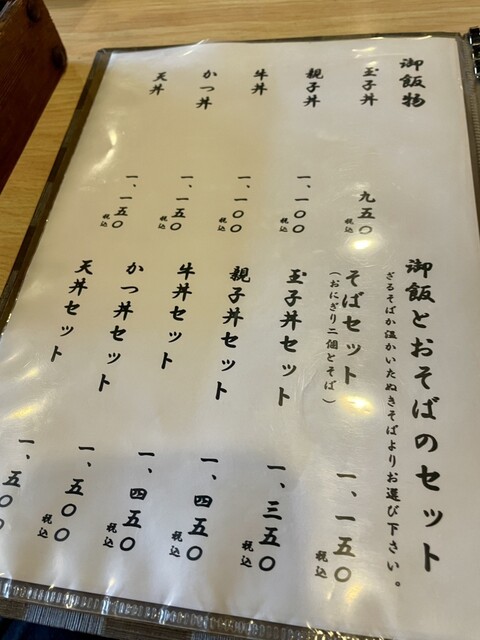 御飯物
玉子丼 九五〇 税込
親子丼 一、一〇〇 税込
牛丼 一、一〇〇 税込
かつ丼 一、一五〇 税込
天丼 一、一五〇 税込
御飯とおそばのセット
ざるそばか温かいたぬきそばよりお選び下さい。
そばセット 一、一五〇 税込
(おにぎり二個とそば)
玉子丼セット 一、三五〇 税込
親子丼セット 一、四五〇 税込
牛丼セット 一、四五〇 税込
かつ丼セット 一、五〇〇 税込
天丼セット 一、五〇〇